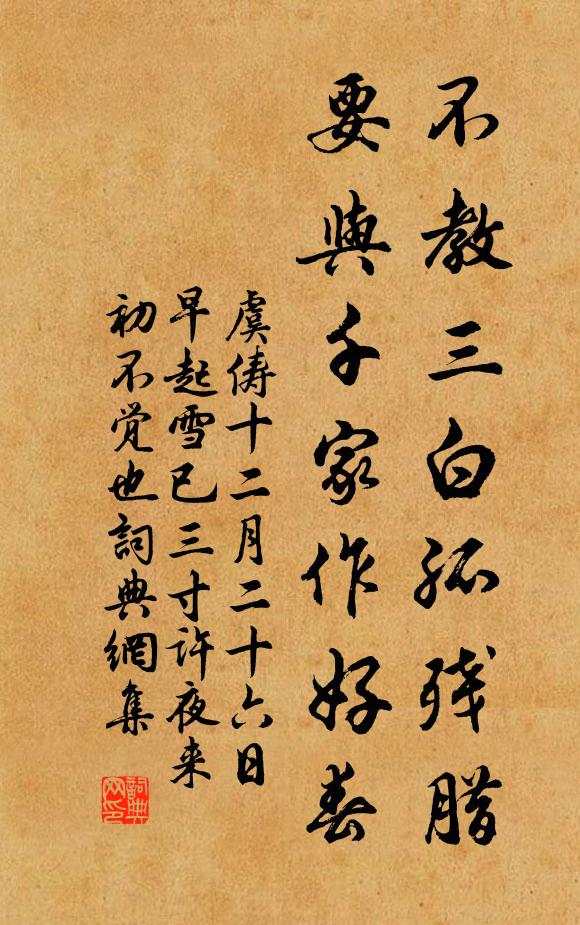 不教三白孤残腊
要與千家作好春
虞儔十二月二十六日
早起雪已三寸许夜来
初不觉也詞典網集
詞典
网印